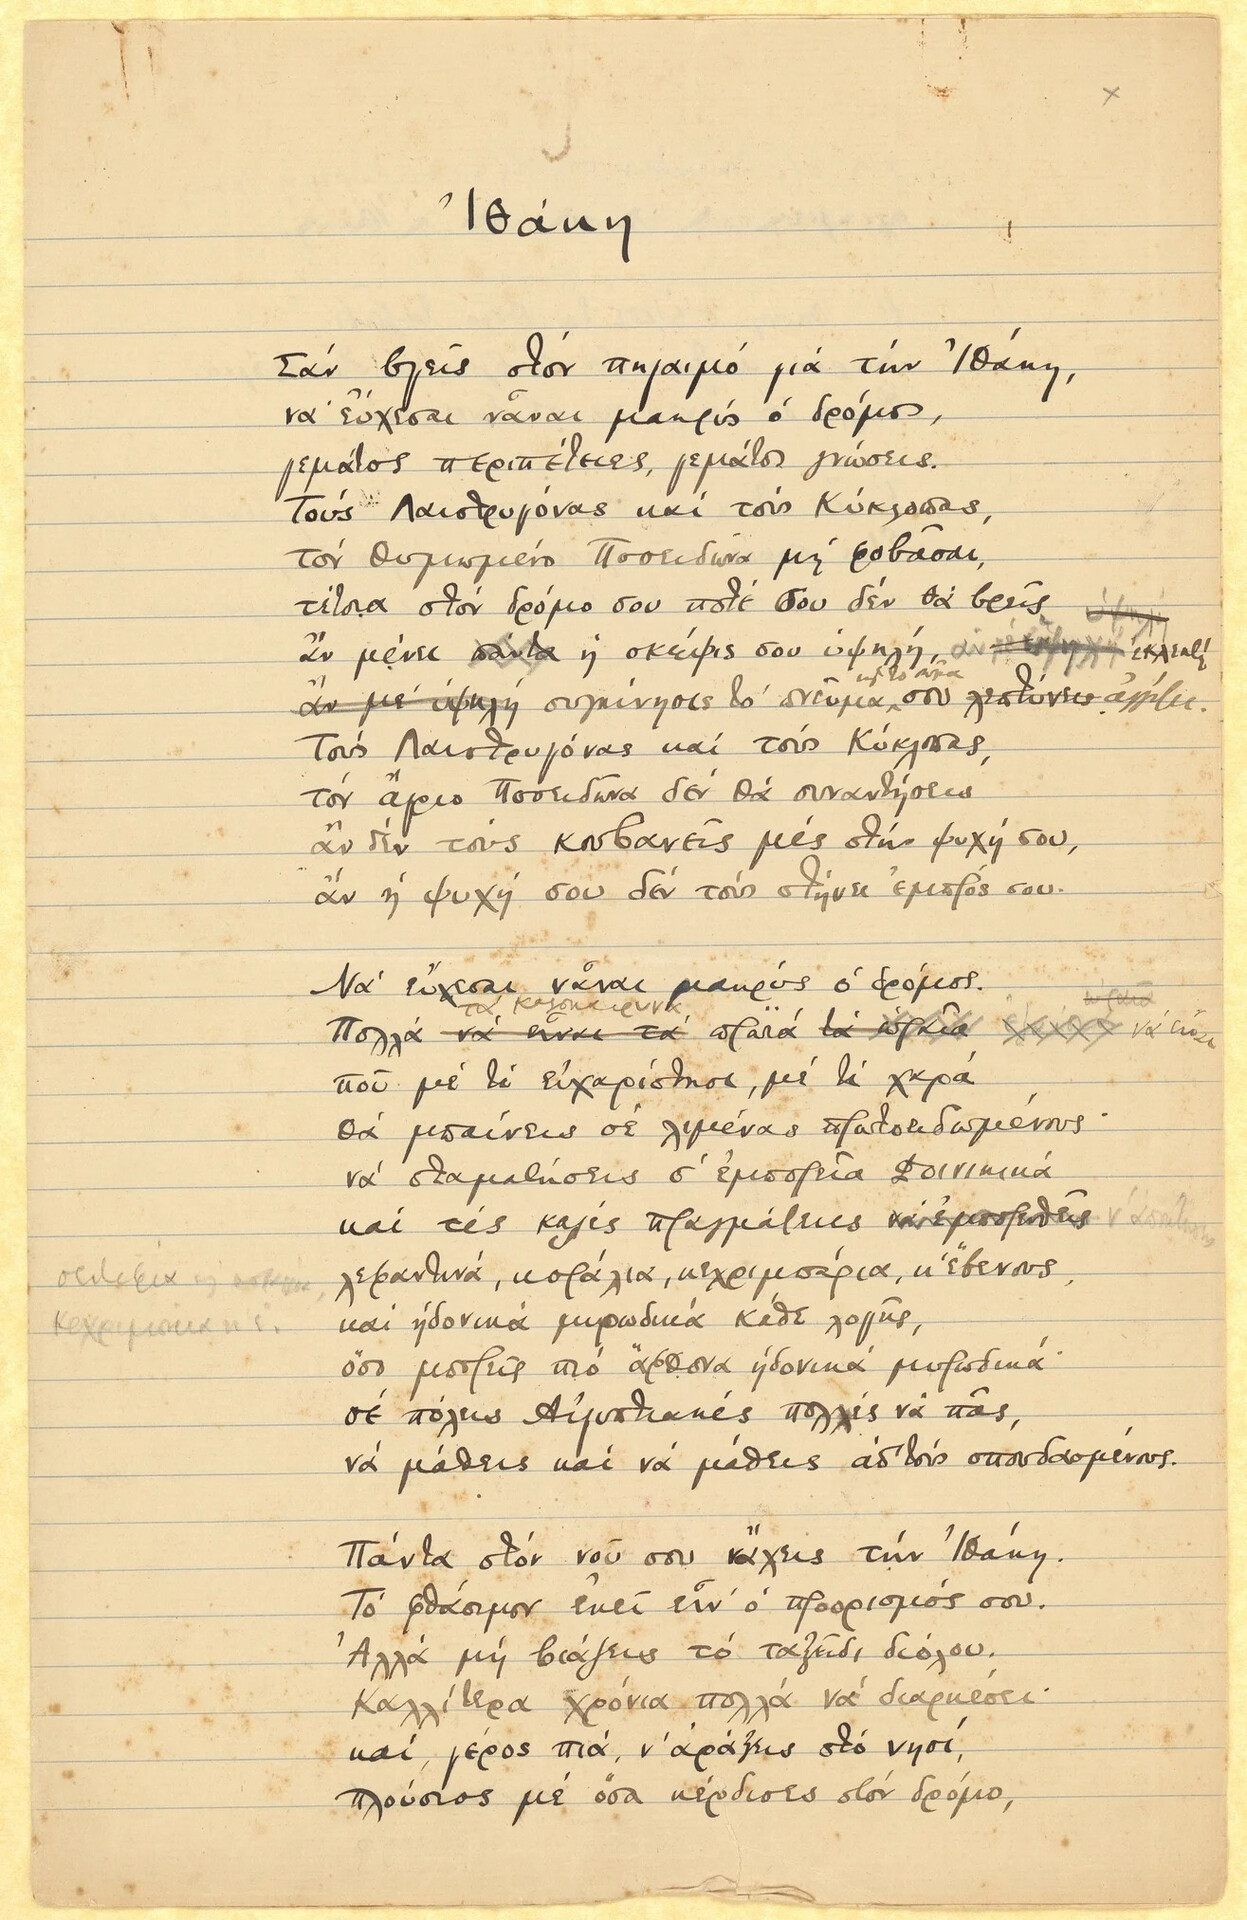 Ἰθάκη
Σάν βγεῖς στόν πηγαιμό γιά τήν Ἰθάκη,
νά εὔχεσαι νἆναι μακρύς ὁ δρόμος,
γεμάτος περιπέτειες, γεμάτος γνώσεις.
Τούς Λαιστρυγόνας καί τούς Κύκλωπας,
τόν θυμωμένο Ποσειδῶνα μή φοβᾶσαι,
τέτοια στόν δρόμο σου ποτέ σου δέν θά βρεῖς
ὑψηλή
ἄν μένει πάντα ἡ σκέψις σου ὑψηλή, ἄν ἐκλεκτή
καί τό σῶμα
ἄν μέ ὑψηλή συγκίνησις τό πνεῦμα σου λεπτύνεις ἀγγίζει.
Τούς Λαιστρυγόνας καί τούς Κύκλωπας,
τόν ἄγριο Ποσειδῶνα δέν θά συναντήσεις
ἄν δέν τούς κουβανεῖς μές στήν ψυχή σου,
ἄν ἡ ψυχή σου δέν τούς στήνει ἐμπρός σου.
Νά εὔχεσαι νἆναι μακρύς ὁ δρόμος.
τά καλοκαιρινά
ὡραῖα
Πολλά νά εἶναι τά πρωϊά τά ὡραῖα νά εἶναι
πού μέ τί εὐχαρίστησι, μέ τί χαρά
θά μπαίνεις σέ λιμένας πρωτοειδωμένους·
νά σταματήσεις σ' ἐμπορεῖα Φοινικικά
καί τές καλές πραγμάτειες νά ἐμπορευθεῖς ν' ἀποκτήσεις
σεντεφια κεχριμπαρια κ' ἐ.
λεφαντινά, κοράλια, κεχριμπάρια, κ' ἔβενους,
καί ἡδονικά μυρωδικά κάθε λογῆς,
ὅσο μπορεῖς πιό ἄφθονα ἡδονικά μυρωδικά·
σέ πόλεις Αἰγυπτιακές πολλές νά πᾶς,
νά μάθεις καί νά μάθεις ἀπ' τούς σπουδασμένους.
Πάντα στόν νοῦ σου νἄχεις τήν Ἰθάκη.
Τό φθάσιμον ἐκεῖ εἶν' ὁ προορισμός σου.
Ἀλλά μή βιάζεις τό ταξεῖδι διόλου.
Καλλίτερα χρόνια πολλά νά διαρκέσει·
καί, γέρος πιά, ν' ἀράξεις στό νησί,
πλούσιος μέ ὅσα κέρδισες στόν δρόμο,